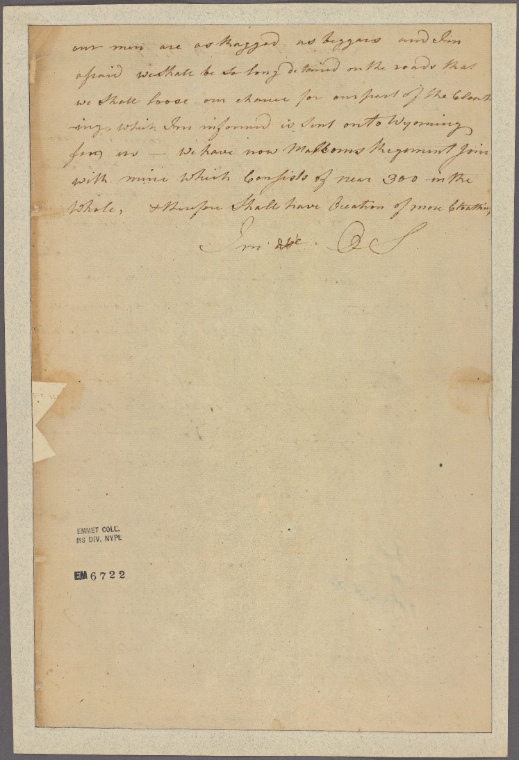 our men are as Ragged as beggers and I'm
afraid we shall be so long detained on the roads that
we Shall loose our chance for our part of the Cloath
-ing, which I'm informed is Sent on to Wyoming
for us — we have now Malcoms Regement Join
with mine which Consists of near 300 in the
whole, & therefore Shall have Ocation of more Cloathing
I'm &c O S
EMMET COLL.
MS DIV, NYPL
EM 6722